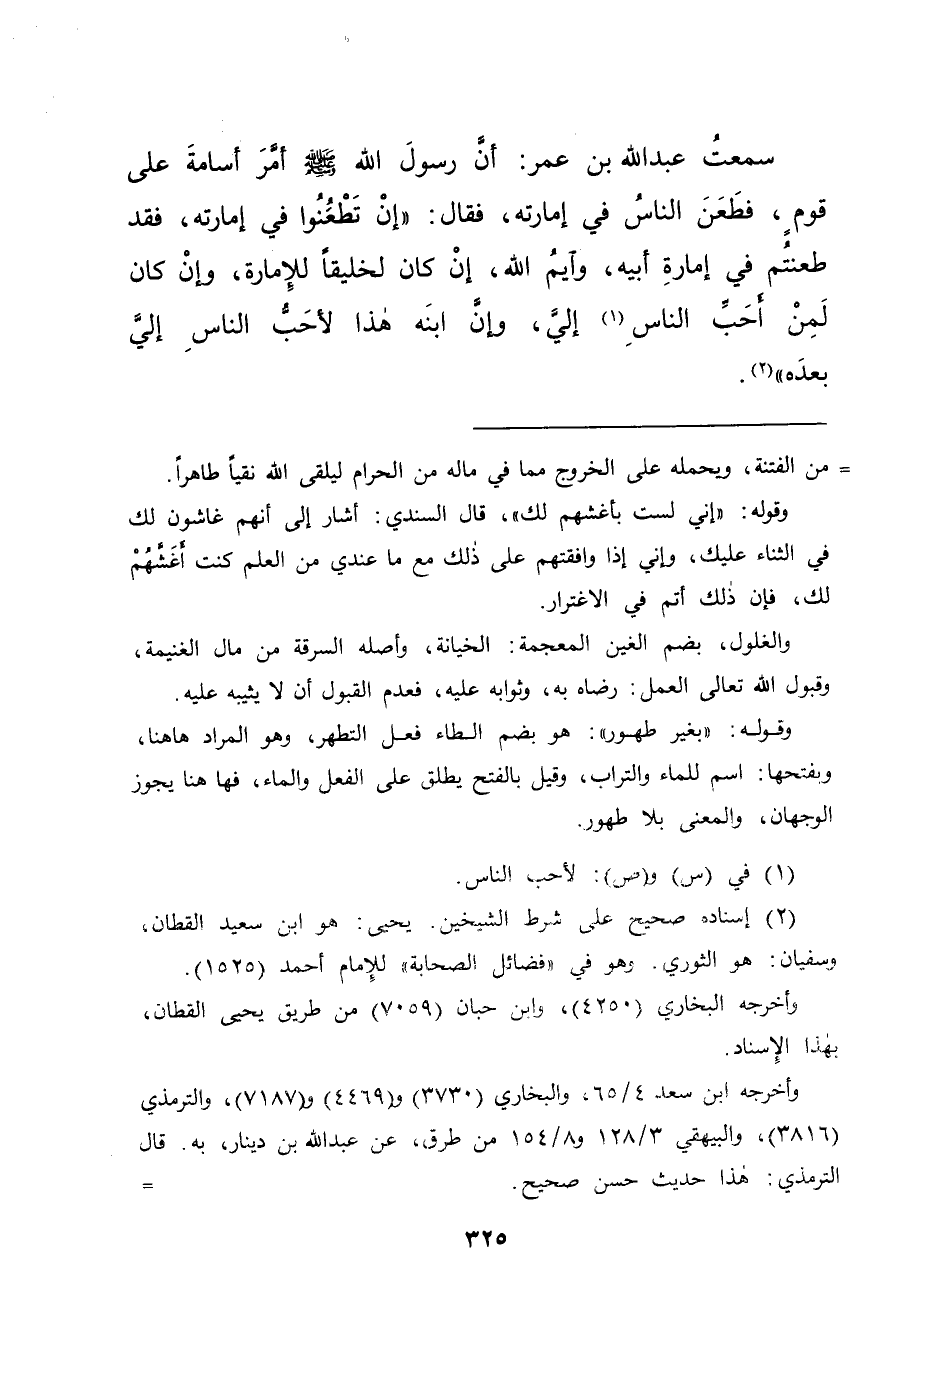 سمعتُ عبدالله بن عمر: أنَّ رسولَ الله ﷺ أمَّرَ أسامةَ على
قومٍ، فطَعَنَ الناسُ في إمارته، فقال: «إنْ تَطْعُنُوا في إمارته، فقد
طعنتُم في إمارةِ أبيه، وآيمُ الله، إنْ كان لخليقاً للإِمارة، وإنْ كان
لَمِنْ أَحَبِّ الناسِ(١) إليَّ، وإنَّ ابنَه هٰذا لأحَبُّ الناسِ إليَّ
بعدَه»(٢).
= من الفتنة، ويحمله على الخروج مما في ماله من الحرام ليلقى الله نقياً طاهراً.
وقوله: «إني لست بأغشهم لك»، قال السندي: أشار إلى أنهم غاشون لك
في الثناء عليك، وإني إذا وافقتهم على ذٰلك مع ما عندي من العلم كنت أَغَشَّهُمْ
لك، فإن ذٰلك أتم في الاغترار.
والغلول، بضم الغين المعجمة: الخيانة، وأصله السرقة من مال الغنيمة،
وقبول الله تعالى العمل: رضاه به، وثوابه عليه، فعدم القبول أن لا يثيبه عليه.
وقوله: «بغير طهور»: هو بضم الطاء فعل التطهر، وهو المراد هاهنا،
وبفتحها: اسم للماء والتراب، وقيل بالفتح يطلق على الفعل والماء، فها هنا يجوز
الوجهان، والمعنى بلا طهور.
(١) في (س) و(ص): لأحب الناس.
(٢) إسناده صحيح على شرط الشيخين. يحيى: هو ابن سعيد القطان،
وسفيان: هو الثوري. وهو في «فضائل الصحابة» للإمام أحمد (١٥٢٥).
وأخرجه البخاري (٤٢٥٠)، وابن حبان (٧٠٥٩) من طريق يحيى القطان،
بهٰذا الإِسناد.
وأخرجه ابن سعد ٦٥/٤، والبخاري (٣٧٣٠) و(٤٤٦٩) و(٧١٨٧)، والترمذي
(٣٨١٦)، والبيهقي ١٢٨/٣ و١٥٤/٨ من طرق، عن عبدالله بن دينار، به. قال
الترمذي: هٰذا حديث حسن صحيح. =
٣٢٥